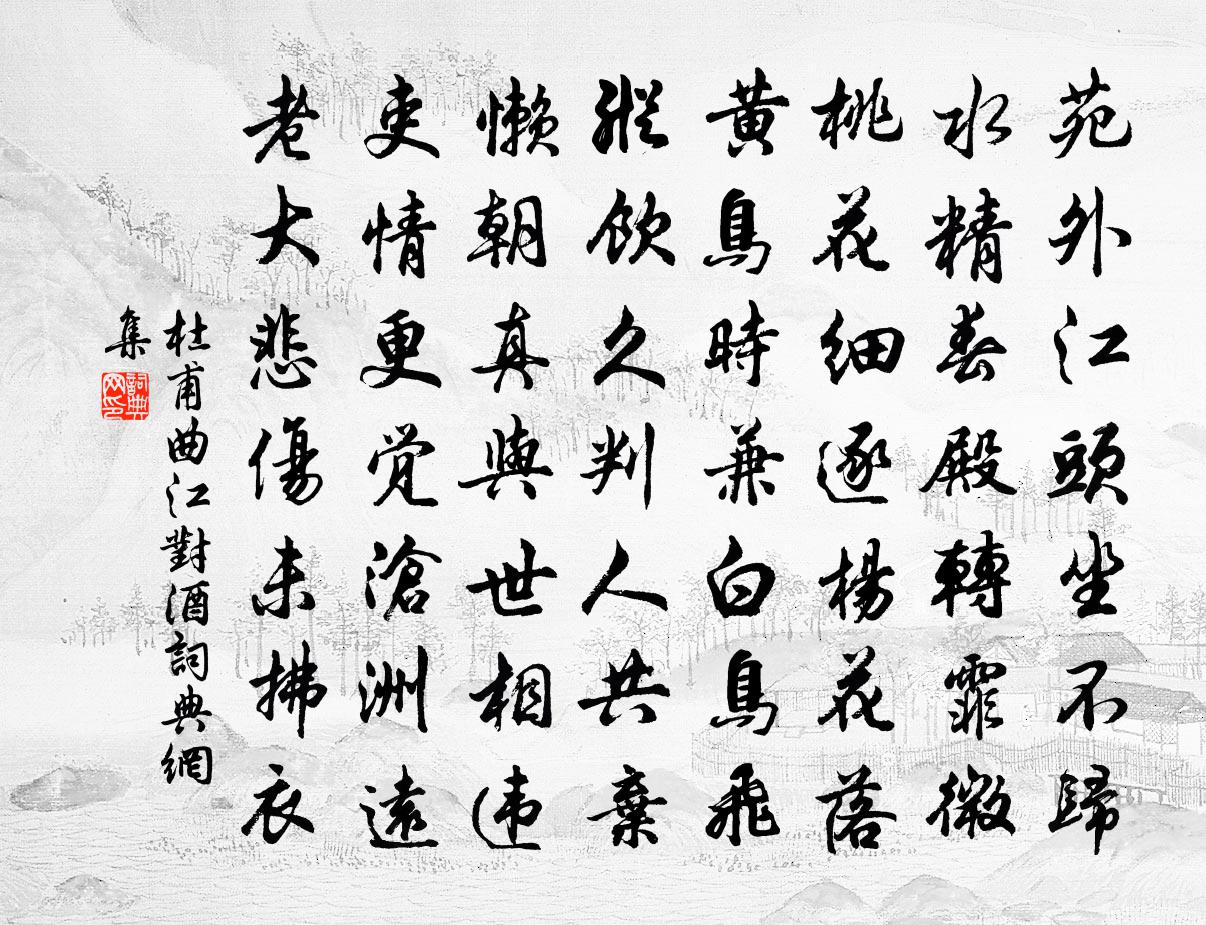 苑外江頭坐不歸
水精春殿轉霏微
桃花細逐楊花落
黃鳥時兼白鳥飛
縱飲久判人共棄
懶朝真與世相違
吏情更覺滄洲遠
老大悲傷未拂衣
杜甫曲江對酒詞典網
集
詞典
网印